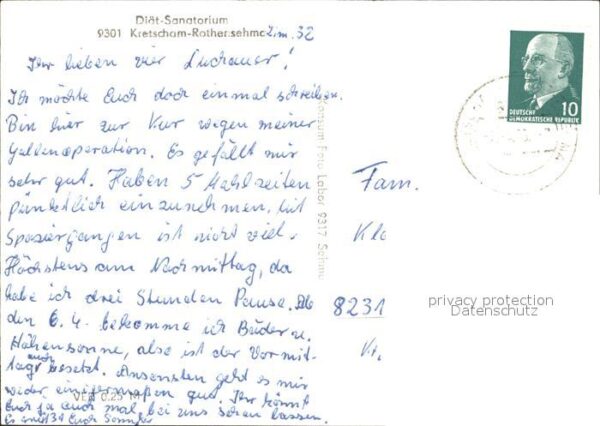 Diät-Sanatorium
9301 Kretscham-Rothensehma Zim. 32
Ihr lieben vier Luckauer!
Ich möchte Euch doch einmal schreiben.
Bin hier zur Kur wegen meiner
Gallenoperation. Es gefällt mir
sehr gut. Haben 5 Mahlzeiten
pünktlich einzunehmen. Mit
Spaziergängen ist nicht viel.
Höchstens am Nachmittag, da
habe ich drei Stunden Pause. Ab
den 6.4. bekomme ich Bäder u.
Höhensonne, also ist der Vormit-
tag auch besetzt. Ansonsten geht es mir
wieder einigermaßen gut. Ihr könnt
Euch ja auch mal bei uns sehen lassen.
Es grüßt Euch
Foto Labor 9317 Sehma
DEUTSCHE
DEMOKRATISCHE REPUBLIK
10
Fam.
Klo
8231
privacy protection
Datenschutz